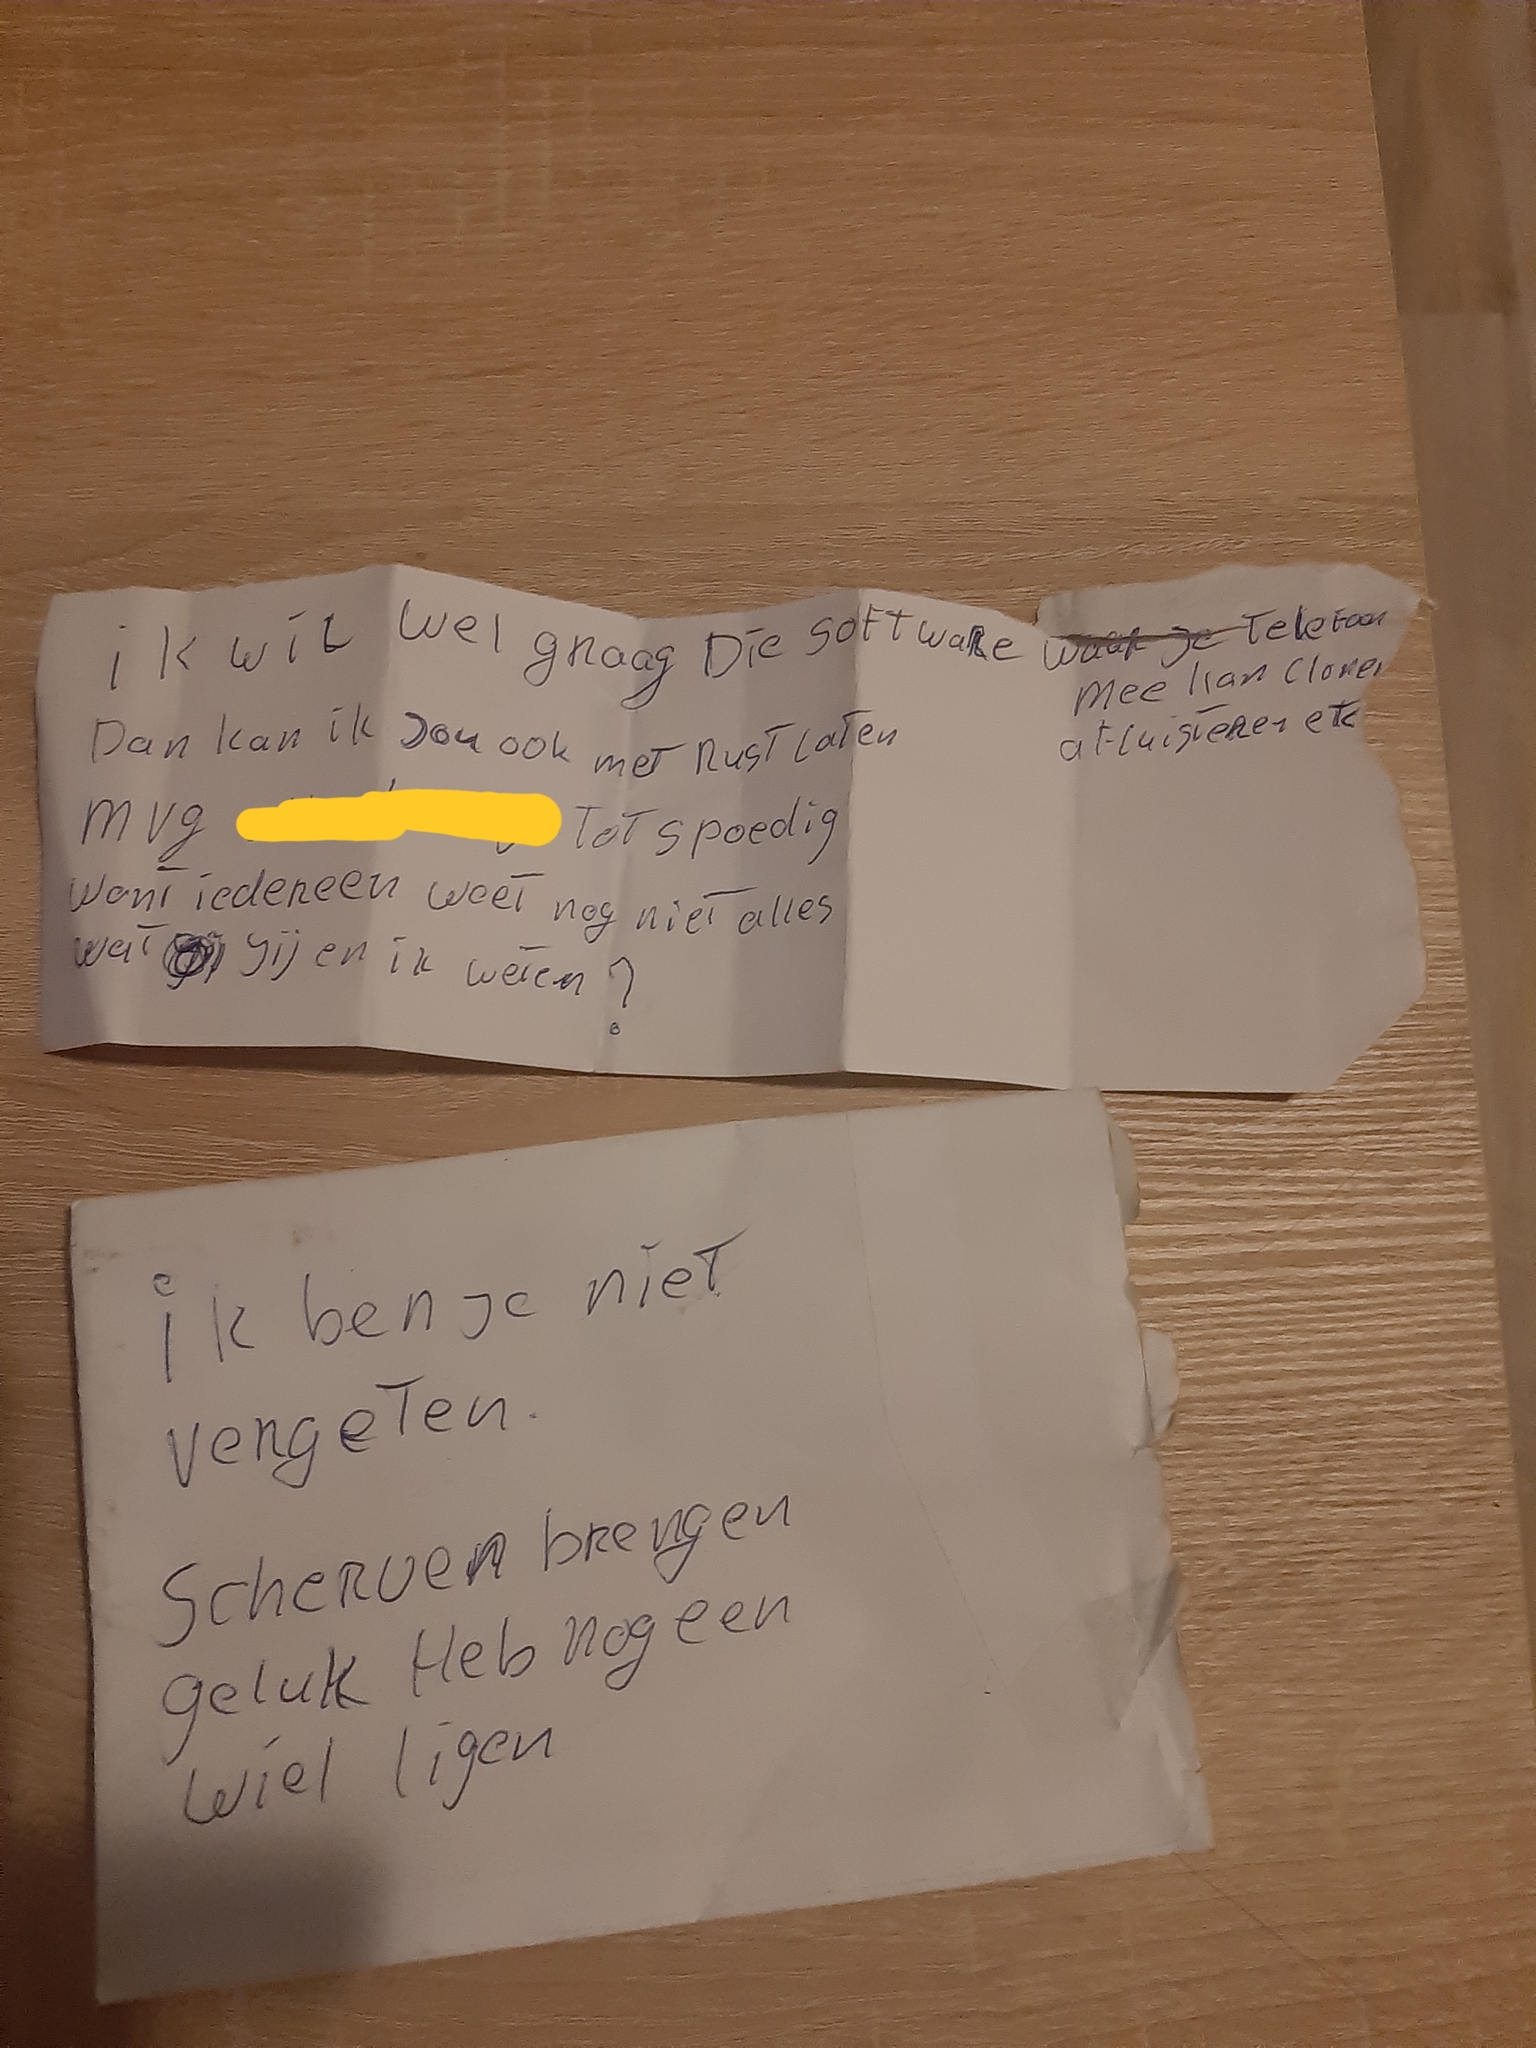 ik wil wel graag Die software waar je Telefoon
mee kan clonen
afluisteren etc
Dan kan ik jou ook met Rust laten
mvg Tot spoedig
want iedereen weet nog niet alles
wat jij en ik weten ?
ik ben je niet
vergeten.
Scherven brengen
geluk Heb nog een
wiel ligen